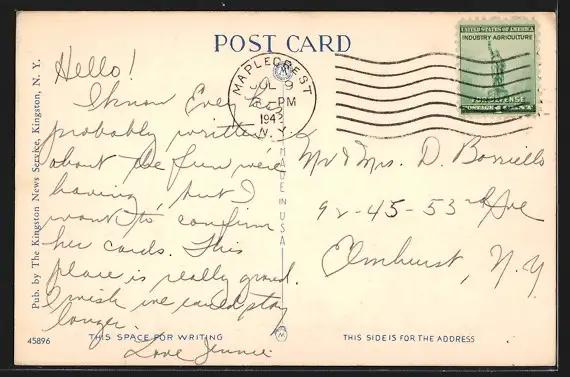 POST CARD
Hello!
I know Evey has
probably written
about the fun were
having, but I
want to confirm
her cards. This
place is really grand.
I wish we could stay
longer.
Love Jennie
MAPLECREST
JUL 9
PM
194
N.Y.
UNITED STATES OF AMERICA
INDUSTRY AGRICULTURE
FOR DEFENSE
POSTAGE 1 CENT
Mr & Mrs. D. Borriello
92-45-53rd Ave
Elmhurst, N.Y.
Pub. by The Kingston News Service, Kingston, N. Y.
MADE IN USA
45896
THIS SPACE FOR WRITING
THIS SIDE IS FOR THE ADDRESS